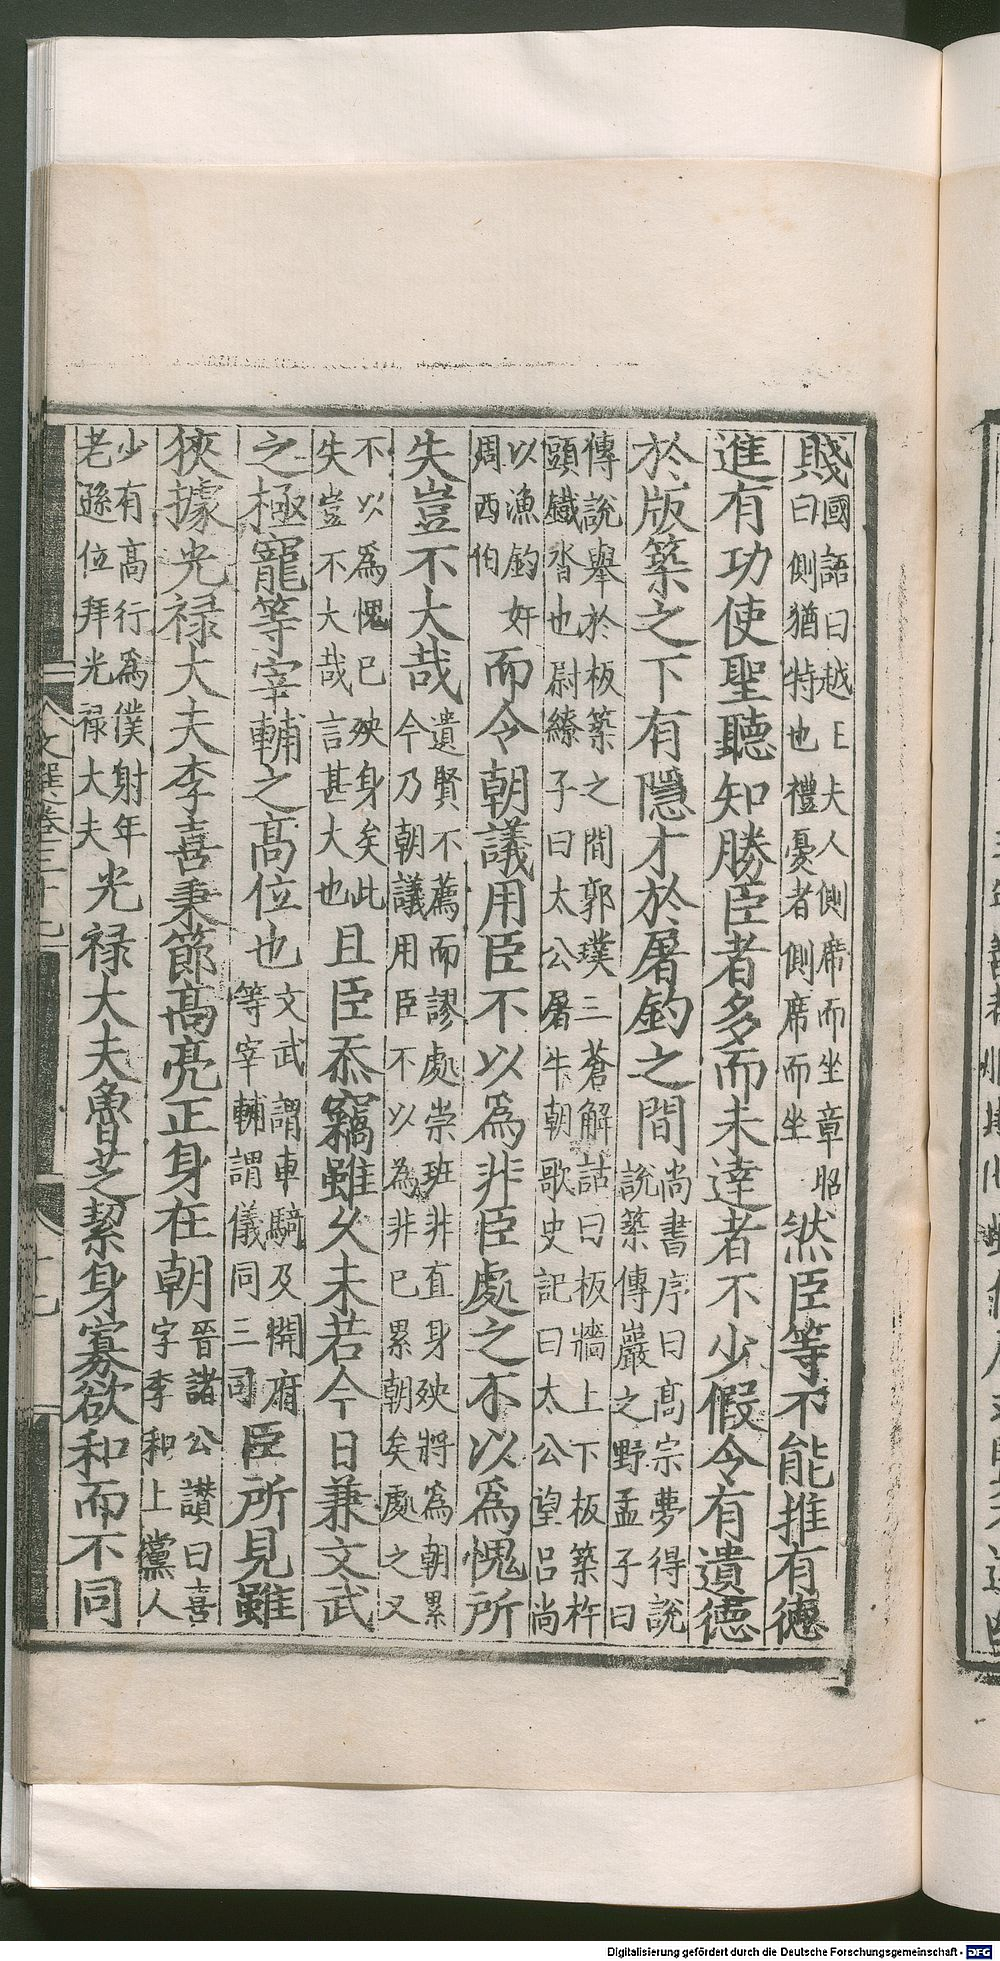 賤
國語曰越王夫人側席而坐韋昭
曰側猶特也禮憂者側席而坐
然臣等不能推有德
進有功使聖聽知勝臣者多而未達者不少假令有遺德
於版築之下有隱才於屠釣之間
尚書序曰高宗夢得說
說築傅巖之野孟子曰
傅說舉於板築之間郭璞三蒼解詁曰板牆上下板築杵
頭鐵沓也尉繚子曰太公屠牛朝歌史記曰太公望呂尚
以漁釣奸
周西伯
而令朝議用臣不以爲非臣處之不以爲愧所
失豈不大哉
遺賢不薦而謬處崇班非直身殃將爲朝累
今乃朝議用臣不以為非已累朝矣處之又
不以爲愧已殃身矣此
失豈不大哉言甚大也
且臣忝竊雖久未若今日兼文武
之極寵等宰輔之高位也
文武謂車騎及開府
等宰輔謂儀同三司
臣所見雖
狹據光祿大夫李喜秉節高亮正身在朝
晉諸公讃曰喜
字季和上黨人
少有高行爲僕射年
老遜位拜光祿大夫
光祿大夫魯芝絜身寡欲和而不同
文選卷三十七
Digitalisierung gefördert durch die Deutsche Forschungsgemeinschaft - DFG